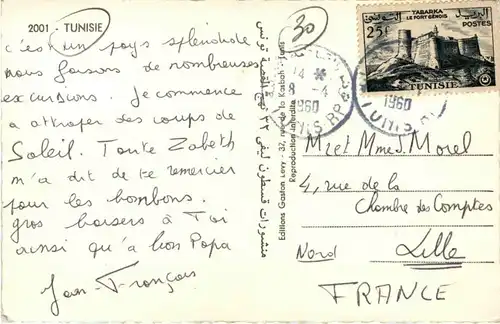 2001 - TUNISIE
c'est un pays splendide
nous faisons de nombreuses
excursions. Je commence
a attraper des coups de
Soleil. Tante Zabeth
m'a dit de te remercier
pour les bonbons.
gros baisers à Toi
ainsi qu'à bon Papa
Jean-François
30
Editions Gaston Levy - 32, rue de la Kasbah - Tunis
Reproduction interdite
TABARKA
LE FORT GENOIS
25F
POSTES
TUNISIE
14 *
8 -4
1960
TUNIS R.P.
1960
TUNIS
Mr et Mme J. Morel
4, rue de la
Chambre des Comptes
Lille
Nord
FRANCE